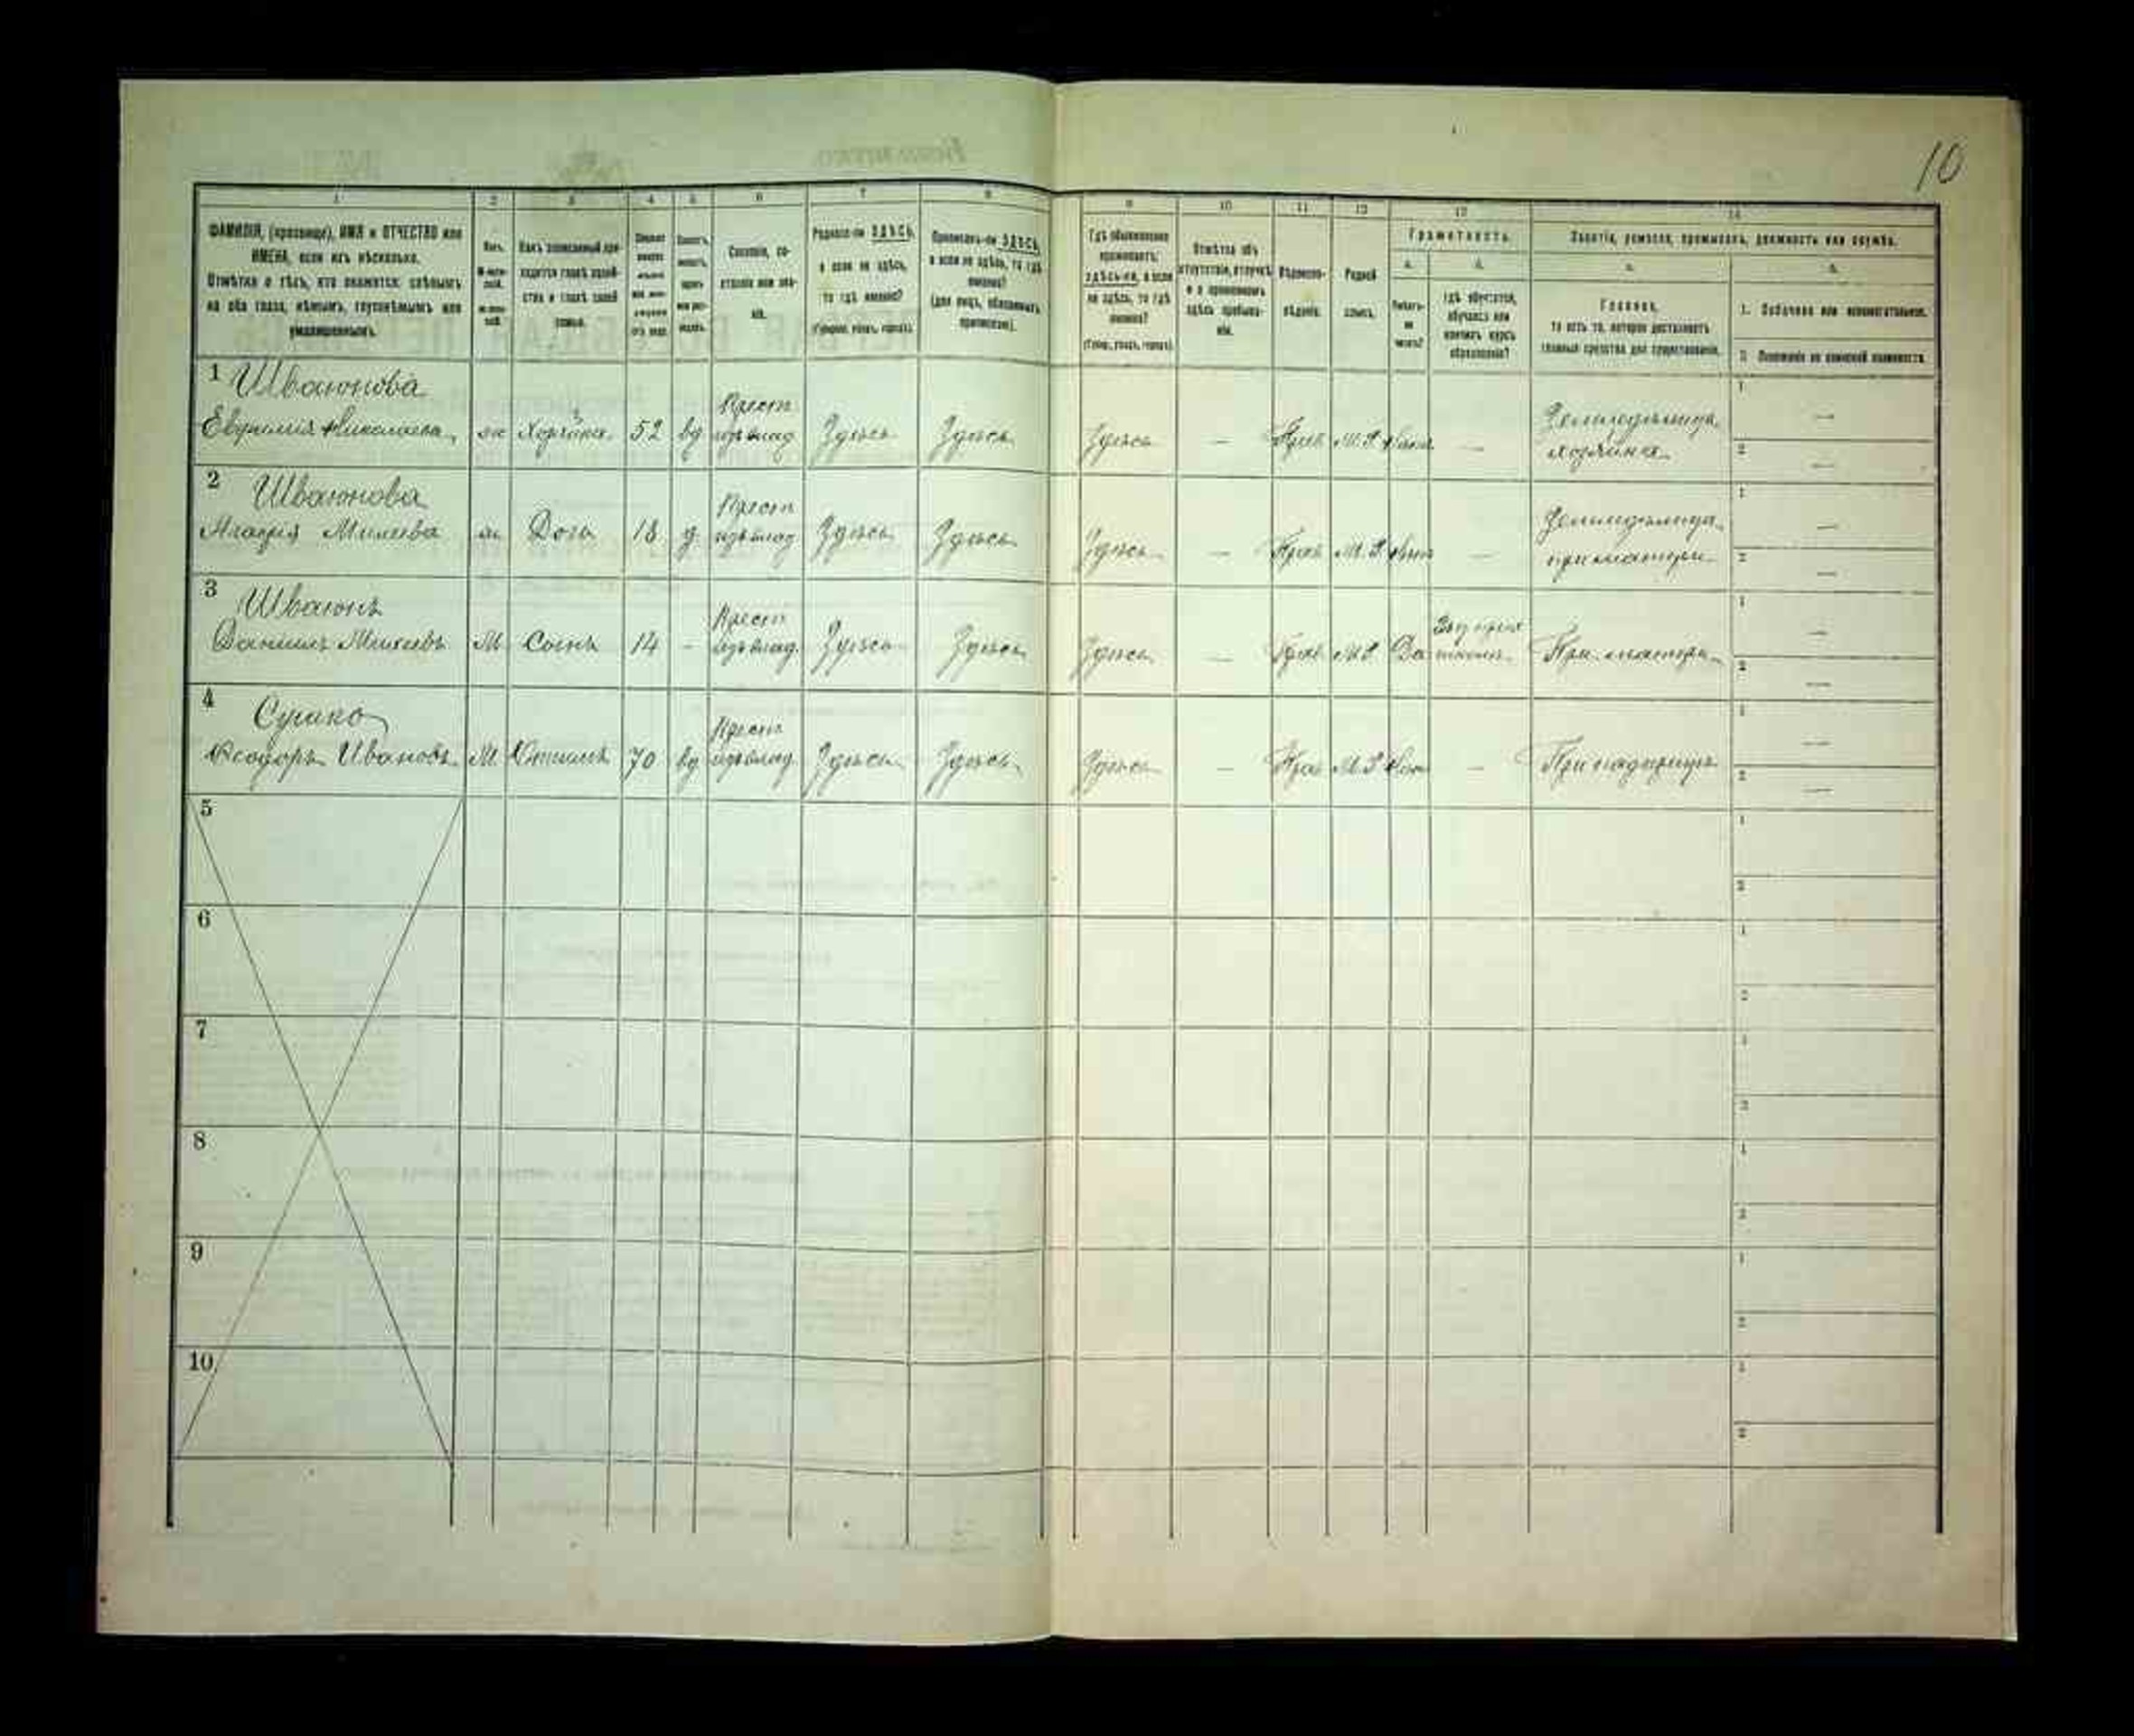 10
1
2
3
4
5
6
7
8
9
10
11
12
13
14
ФАМИЛІЯ, (прозвище), ИМЯ и ОТЧЕСТВО или
ИМЕНА, если ихъ нѣсколько.
Отмѣтка о тѣхъ, кто окажется: слѣпымъ
на оба глаза, нѣмымъ, глухонѣмымъ или
умалишеннымъ.
Полъ.
Какъ записанный при-
ходится главѣ хозяй-
ства и главѣ своей
семьи.
Сословіе, со-
стояніе или зва-
ніе.
Родился-ли ЗДѢСЬ,
а если не здѣсь,
то гдѣ именно?
(Губернія, уѣздъ, городъ).
Приписанъ-ли ЗДѢСЬ,
а если не здѣсь, то гдѣ
именно?
(для лицъ, обязанныхъ
припискою).
Гдѣ обыкновенно
проживаетъ:
здѣсь-ли, а если
не здѣсь, то гдѣ
именно?
(Губер., уѣздъ, городъ).
Отмѣтка объ
отсутствіи, отлучкѣ
и о временномъ
здѣсь пребыва-
ніи.
Вѣроиспо-
вѣданіе.
Родной
языкъ.
Грамотность.
а.
б.
Умѣетъ-
ли
читать?
Гдѣ обучается,
обучался или
кончилъ курсъ
образованія?
Занятіе, ремесло, промыселъ, должность или служба.
а.
б.
Главное,
то есть то, которое доставляетъ
главныя средства для существованія.
1. Побочное или вспомогательное.
2. Положеніе по воинской повинности.
1 Шваюнова
Евфимия Николаева
ж
Хозяйка
52
вд
Крест
изъ влад
Здѣсь
Здѣсь
Здѣсь
—
Прав
М.Р
Нѣтъ
—
Земледѣлица
хозяйка
1 —
2 —
2 Шваюнова
Агафія Михеева
ж
Дочь
18
д
Крест
изъ влад
Здѣсь
Здѣсь
Здѣсь
—
Прав
М.Р
Нѣтъ
—
Земледѣлица
при матери
1 —
2 —
3 Шваюнъ
Даниилъ Михеевъ
М
Сынъ
14
-
Крест
изъ влад
Здѣсь
Здѣсь
Здѣсь
—
Прав
М.Р
Да
При матери
1 —
2 —
4 Сушко
Феодоръ Ивановъ
М
70
вд
Крест
изъ влад
Здѣсь
Здѣсь
Здѣсь
—
Прав
М.Р
Нѣтъ
—
1 —
2 —
5
1
2
6
1
2
7
1
2
8
1
2
9
1
2
10
1
2